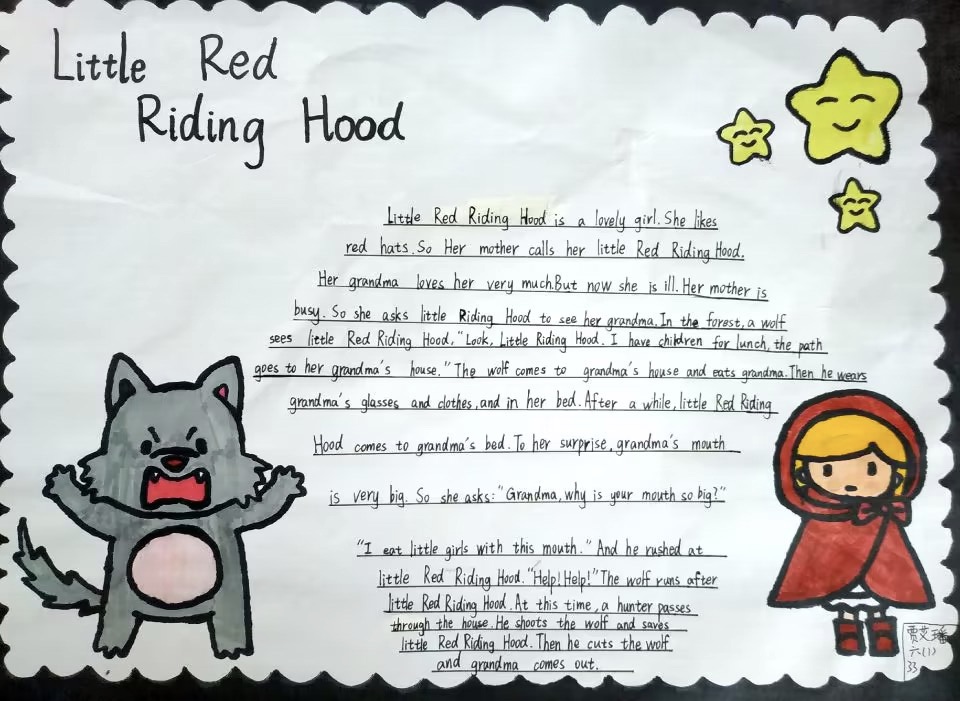 Little Red
Riding Hood
Little Red Riding Hood is a lovely girl. She likes
red hats. So Her mother calls her little Red Riding Hood.
Her grandma loves her very much. But now she is ill. Her mother is
busy. So she asks little Riding Hood to see her grandma. In the forest, a wolf
sees little Red Riding Hood, "Look, Little Riding Hood. I have children for lunch, the path
goes to her grandma's house." The wolf comes to grandma's house and eats grandma. Then he wears
grandma's glasses and clothes, and in her bed. After a while, little Red Riding
Hood comes to grandma's bed. To her surprise, grandma's mouth
is very big. So she asks: "Grandma, why is your mouth so big?"
"I eat little girls with this mouth." And he rushed at
little Red Riding Hood. "Help! Help!" The wolf runs after
little Red Riding Hood. At this time, a hunter passes
through the house. He shoots the wolf and saves
little Red Riding Hood. Then he cuts the wolf
and grandma comes out.
贾艾璠
六(1)
33